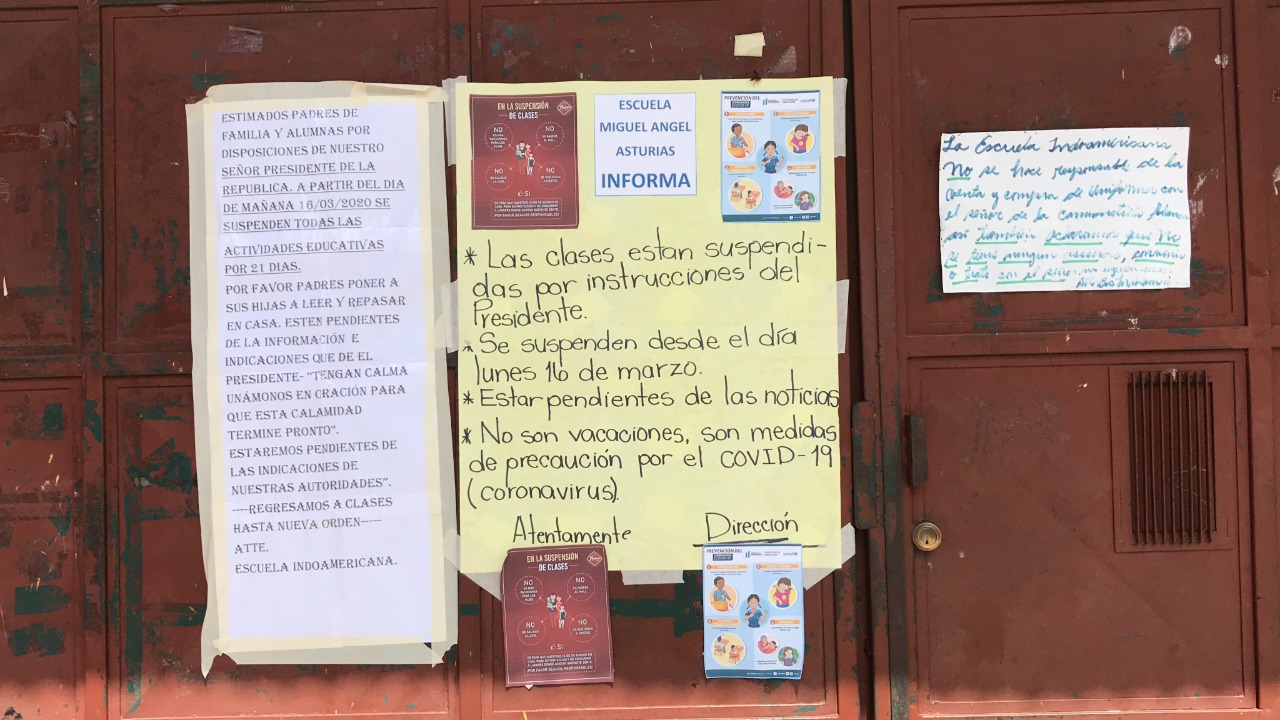 ESTIMADOS PADRES DE
FAMILIA Y ALUMNAS POR
DISPOSICIONES DE NUESTRO
SEÑOR PRESIDENTE DE LA
REPUBLICA. A PARTIR DEL DIA
DE MAÑANA 16/03/2020 SE
SUSPENDE TODAS LAS
ACTIVIDADES EDUCATIVAS
POR 21 DIAS.
POR FAVOR PADRES PONER A
SUS HIJAS A LEER Y REPASAR
EN CASA. ESTEN PENDIENTES
DE LA INFORMACIÓN E
INDICACIONES QUE DE EL
PRESIDENTE- "TENGAN CALMA
UNÁMONOS EN ORACIÓN PARA
QUE ESTA CALAMIDAD
TERMINE PRONTO".
ESTAREMOS PENDIENTES DE
LAS INDICACIONES DE
NUESTRAS AUTORIDADES".
----REGRESAMOS A CLASES
HASTA NUEVA ORDEN-----
ATTE.
ESCUELA INDOAMERICANA.
EN LA SUSPENSIÓN
DE CLASES
NO
NO
NO
NO
SI
¡POR FAVOR SEAMOS RESPONSABLES!
ESCUELA
MIGUEL ANGEL
ASTURIAS
INFORMA
PREVENCIÓN DEL
unicef
* Las clases estan suspendi-
das por instrucciones del
Presidente.
* Se suspenden desde el día
lunes 16 de marzo.
* Estar pendientes de las noticias
* No son vacaciones, son medidas
de precaución por el COVID-19
(coronavirus).
Atentamente Dirección
EN LA SUSPENSIÓN
DE CLASES
NO
NO
NO
NO
SI
¡POR FAVOR SEAMOS RESPONSABLES!
PREVENCIÓN DEL
unicef
La Escuela Indoamericana
No se hace responsable de la
venta y compra de Uniformes con
el señor de la camioneta
así también aclaramos que No
se tiene ningun